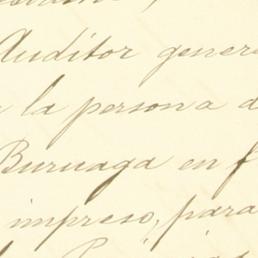 Auditor gener
la persona d
Buruaga en f
impreso, para